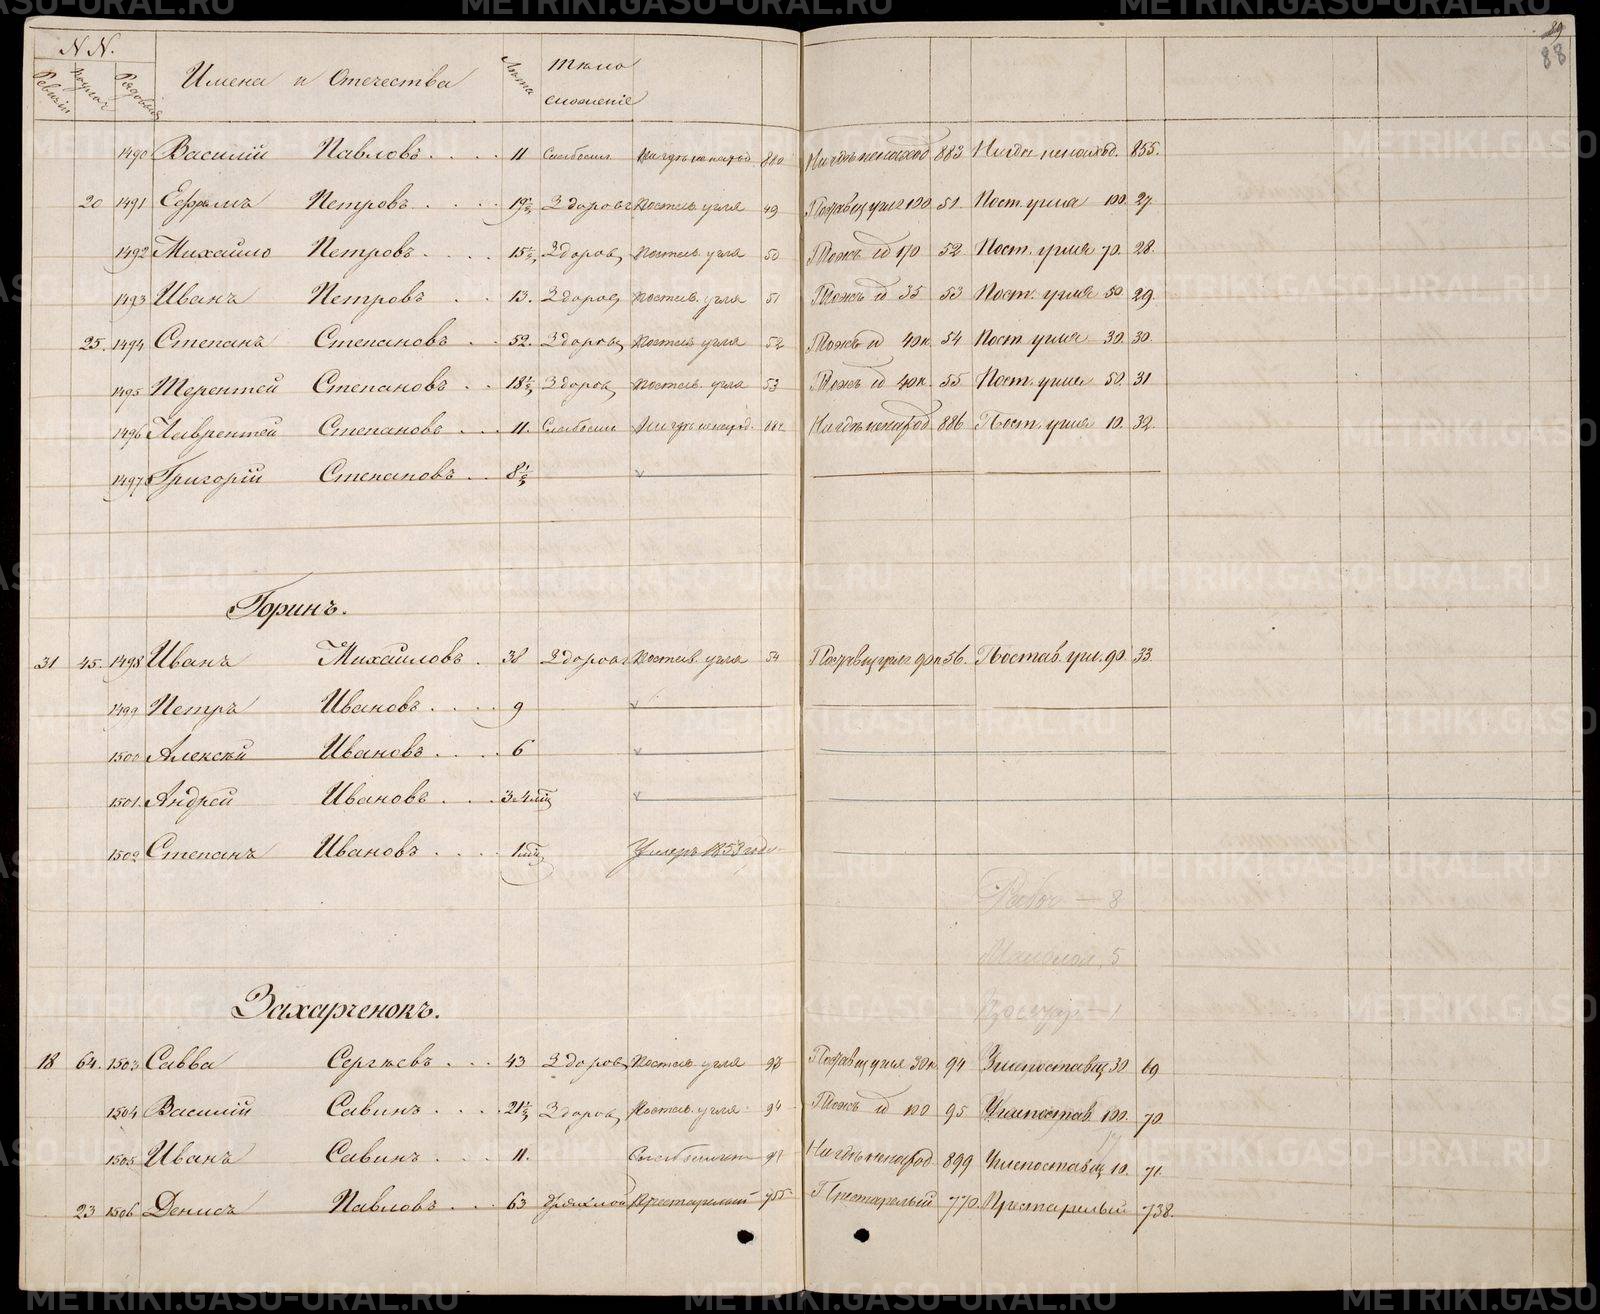 NN.
Имена и Отечества
Лѣта
Тѣло
сложенiе
89
88
1490 Василiй Павловъ 11 Слабосил. 883 855.
20 1491 Ефимъ Петровъ 19½ Здоровъ Постав. угля 49 100 51 Пост. угля 100. 27.
1492 Михайло Петровъ 15½ Здоров. Постав. угля 50 Тожъ 170 52 Пост. угля 70. 28.
1493 Иванъ Петровъ 13. Здоров. Постав. угля 51 Тожъ 35 53 Пост. угля 50. 29.
25. 1494 Степанъ Степановъ 52. Здоров. Постав. угля 52 Тожъ 40к. 54 Пост. угля 30. 30.
1495 Терентей Степановъ 18½ Здоров. Постав. угля 53 Тожъ 40к. 55 Пост. угля 50. 31
1496 Лаврентей Степановъ 11. Слабосил. 886 Пост. угля 10. 32.
1497 Григорiй Степановъ 8½
Горинъ.
31 45. 1498 Иванъ Михайловъ 38 Здоровъ Постав. угля 54 90к 56. Постав. угл. 90. 33.
1499 Петръ Ивановъ 9
1500 Алексѣй Ивановъ 6
1501. Андрей Ивановъ
1502 Степанъ Ивановъ Умеръ 1858 года
8
5
Захарченокъ.
18 64. 1503 Савва Сергѣевъ 43 Здоров. Постав. угля 93 30к. 94 Углепоставщ. 30 69
1504 Василiй Савинъ 21½ Здоров. Постав. угля 94 Тожъ 100 95 Углепостав. 100. 70.
1505 Иванъ Савинъ 11. 899 Углепоставщ. 10. 71.
23 1506 Денисъ Павловъ 63 Дряхлой Престарелый 755 Престарелый 770. Престарелый 738.
METRIKI.GASO-URAL.RU